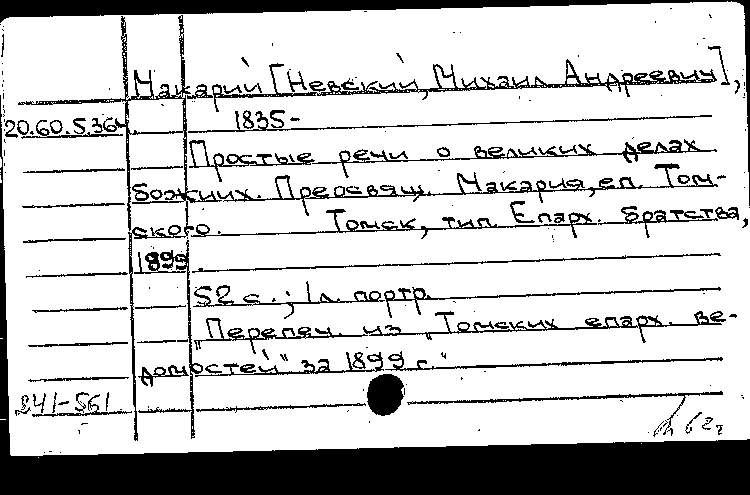 Макарий [Невский, Михаил Андреевич],
20.60.5.364 1835-
Простые речи о великих делах
божиих. Преосвящ. Макария, еп. Том-
ского. Томск, тип. Епарх. братства,
1899.
52 с.; 1л. портр.
"Перепеч. из "Томских епарх. ве-
домостей" за 1899 г."
241-561
62г